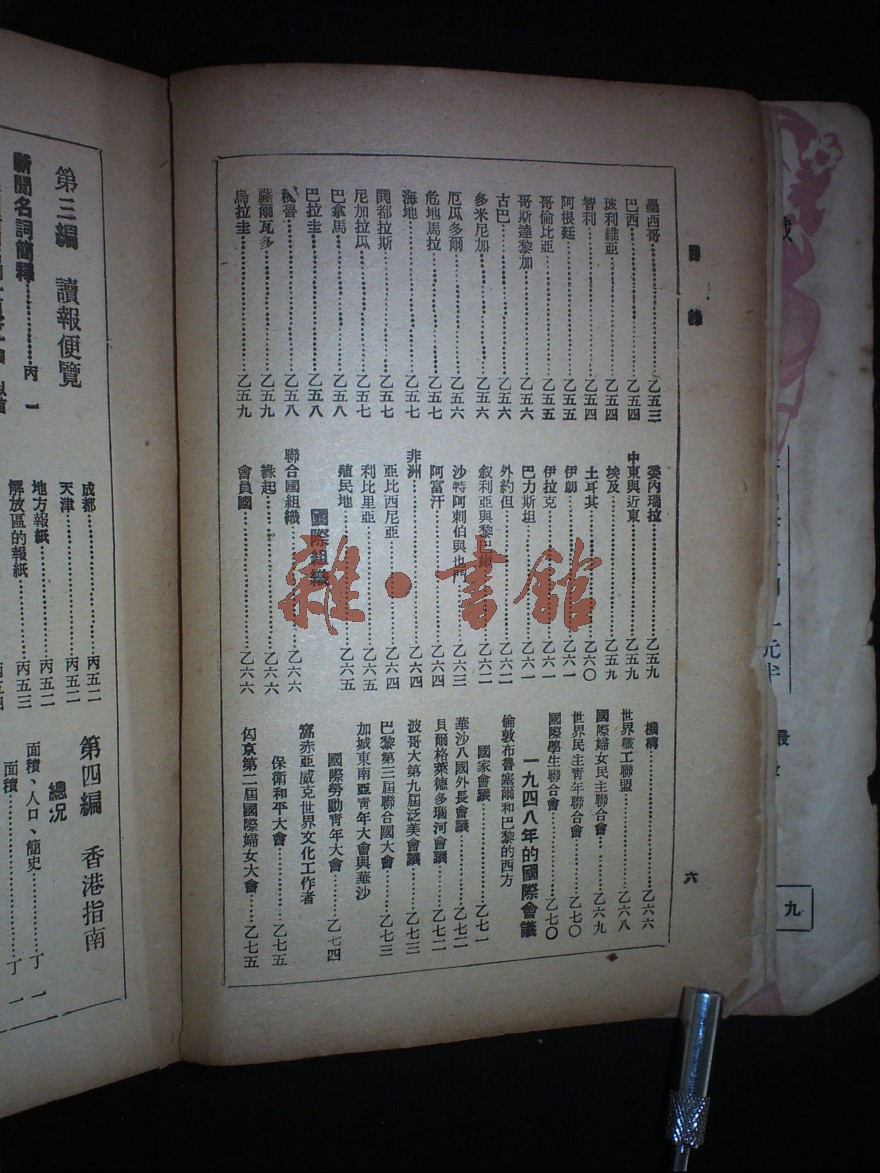 目錄
六
墨西哥……乙五三
巴西……乙五四
玻利維亞……乙五四
智利……乙五四
阿根廷……乙五五
哥倫比亞……乙五五
哥斯達黎加……乙五六
古巴……乙五六
多米尼加……乙五六
厄瓜多爾……乙五六
危地馬拉……乙五七
海地……乙五七
閧都拉斯……乙五七
尼加拉瓜……乙五七
巴拿馬……乙五八
巴拉圭……乙五八
秘魯……乙五八
薩爾瓦多……乙五九
烏拉圭……乙五九
委內瑞拉……乙五九
中東與近東……乙五九
埃及……乙五九
土耳其……乙六〇
伊朗……乙六一
伊拉克……乙六一
巴力斯坦……乙六一
外約但……乙六二
叙利亞與黎巴嫩……乙六二
沙特阿剌伯與也門……乙六三
阿富汗……乙六四
非洲……乙六四
亞比西尼亞……乙六四
利比里亞……乙六五
殖民地……乙六五
國際組織
聯合國組織……乙六六
緣起……乙六六
會員國……乙六六
機構……乙六六
世界職工聯盟……乙六八
國際婦女民主聯合會……乙六九
世界民主青年聯合會……乙七〇
國際學生聯合會……乙七〇
一九四八年的國際會議
倫敦布魯塞爾和巴黎的西方
國家會議……乙七一
華沙八國外長會議……乙七二
貝爾格萊德多瑙河會議……乙七二
波哥大第九屆泛美會議……乙七三
巴黎第三屆聯合國大會……乙七三
加城東南亞青年大會與華沙
國際勞動青年大會……乙七四
富赤亞威克世界文化工作者
保衛和平大會……乙七五
匈京第二屆國際婦女大會……乙七五
第三編 讀報便覽
新聞名詞簡釋……丙一
成都……丙五二
天津……丙五二
地方報紙……丙五二
解放區的報紙……丙五三
第四編 香港指南
總況
面積、人口、簡史……丁一
面積……丁一
九
雜·書館